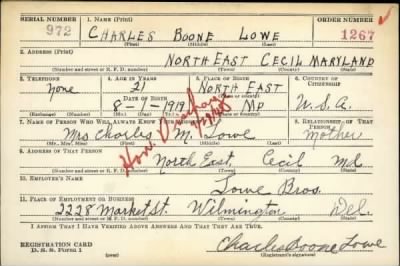 SERIAL NUMBER 1. NAME (Print) ORDER NUMBER
972 CHARLES BOONE LOWE 1267
(First) (Middle) (Last)
2. ADDRESS (Print)
NORTH EAST CECIL MARYLAND
(Number and street or R. F. D. number) (Town) (County) (State)
3. TELEPHONE 4. AGE IN YEARS 5. PLACE OF BIRTH 6. COUNTRY OF CITIZENSHIP
None 21 NORTH EAST
DATE OF BIRTH (Town or county)
8-1-1919 MD U.S.A.
(Exchange) (Number) (Mo.) (Day) (Yr.) (State or country)
7. NAME OF PERSON WHO WILL ALWAYS KNOW YOUR ADDRESS 8. RELATIONSHIP OF THAT PERSON
Mrs Charles M. Lowe Mother
(Mr., Mrs., Miss) (First) (Middle) (Last)
Hon.
9. ADDRESS OF THAT PERSON
North East, Cecil Md.
(Number and street or R. F. D. number) (Town) (County) (State)
10. EMPLOYER'S NAME
Lowe Bros.
11. PLACE OF EMPLOYMENT OR BUSINESS
2228 Market St. Wilmington Del.
(Number and street or R. F. D. number) (Town) (County) (State)
I AFFIRM THAT I HAVE VERIFIED ABOVE ANSWERS AND THAT THEY ARE TRUE.
REGISTRATION CARD
D. S. S. Form 1
Charles Boone Lowe
(Registrant's signature)